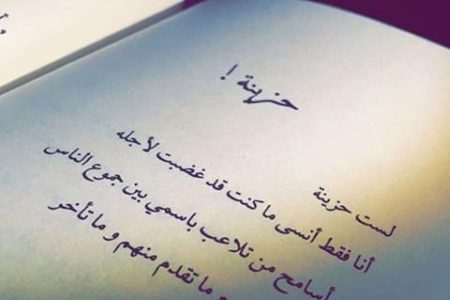 حزينة !
لست حزينة
أنا فقط أنسى ما كنت قد غضبت لأجله
أسامح من تلاعب باسمي بين جموع الناس
ما تقدم منهم و ما تأخر